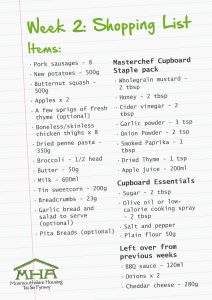 Week 2: Shopping List
Items:
· Pork sausages - 8
· New potatoes - 500g
· Butternut squash - 500g
· Apples x 2
· A few sprigs of fresh thyme (optional)
· Boneless/skinless chicken thighs x 8
· Dried penne pasta - 350g
· Broccoli - 1/2 head
· Butter - 50g
· Milk - 600ml
· Tin sweetcorn - 200g
· Breadcrumbs - 23g
· Garlic bread and salad to serve (optional)
· Pita Breads (optional)
Masterchef Cupboard Staple pack
· Wholegrain mustard - 2 tbsp
· Honey - 2 tbsp
· Cider vinegar - 2 tbsp
· Garlic powder - 3 tsp
· Onion Powder - 2 tsp
· Smoked Paprika - 1 tsp
· Dried Thyme - 1 tsp
· Apple juice - 200ml
Cupboard Essentials
· Sugar - 2 tbsp
· Olive oil or low-calorie cooking spray - 2 tbsp
· Salt and pepper
· Plain flour 50g
Left over from previous weeks
· BBQ sauce - 120ml
· Onions x 2
· Cheddar cheese - 280g
MHA
Monmouthshire Housing
Tai Sir Fynwy